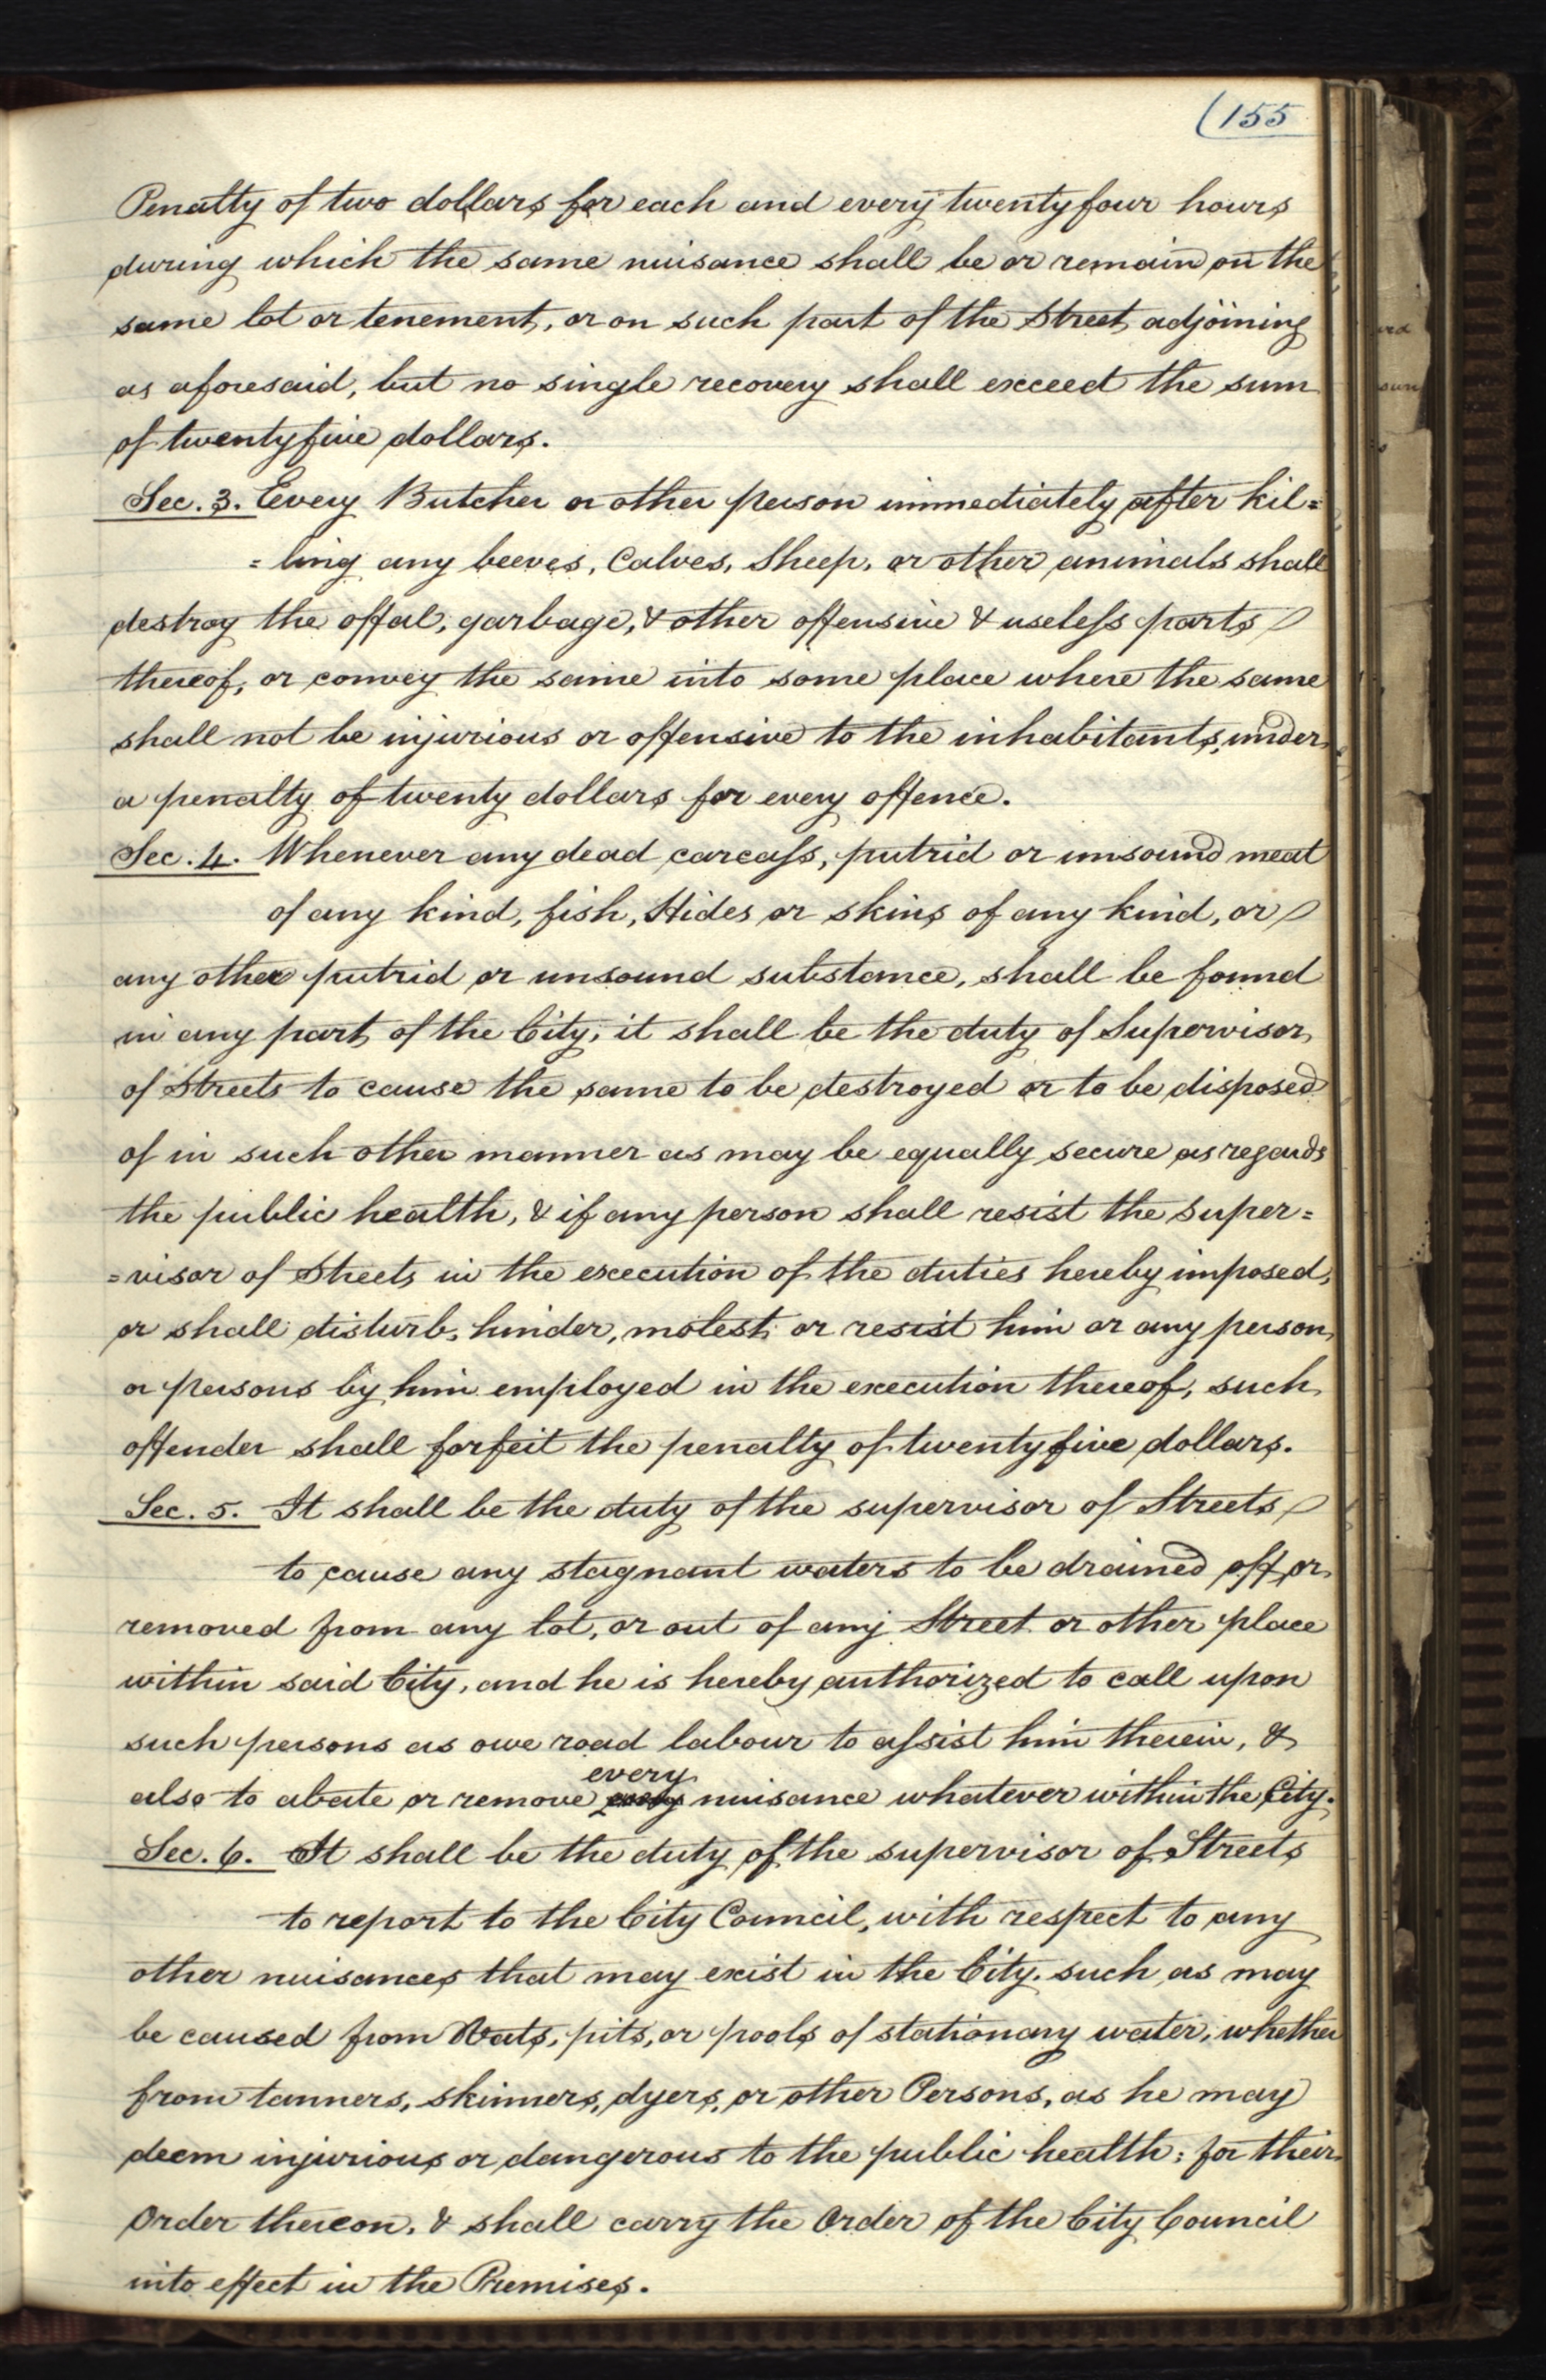 (155
Penalty of two dollars for each and every twenty four hours
during which the same nuisance shall be or remain on the
same lot or tenement, or on such part of the Street adjoining
as aforesaid, but no single recovery shall exceed the sum
of twenty five dollars.
Sec. 3. Every Butcher or other person immediately after kil=
=ling any beeves, Calves, Sheep, or other animals shall
destroy the offal, garbage, & other offensive & useless parts
thereof, or convey the same into some place where the same
shall not be injurious or offensive to the inhabitants, under
a penalty of twenty dollars for every offence.
Sec. 4. Whenever any dead carcass, putrid or unsound meat
of any kind, fish, Hides or skins of any kind, or
any other putrid or unsound substance, shall be found
in any part of the City, it shall be the duty of Supervisor
of Streets to cause the same to be destroyed or to be disposed
of in such other manner as may be equally secure as regards
the public health, & if any person shall resist the Super=
=visor of Streets in the execution of the duties hereby imposed,
or shall disturb, hinder, molest or resist him or any person
or persons by him employed in the execution thereof, such
offender shall forfeit the penalty of twenty five dollars.
Sec. 5. It shall be the duty of the supervisor of Streets
to cause any stagnant waters to be drained off or
removed from any lot, or out of any Street or other place
within said City, and he is hereby authorized to call upon
such persons as owe road labour to assist him therein, &
every
also to abate or remove nuisance whatever within the City.
Sec. 6. It shall be the duty of the supervisor of Streets
to report to the City Council, with respect to any
other nuisances that may exist in the City. such as may
be caused from Vats, pits, or pools of stationary water, whether
from tanners, skinners, dyers, or other Persons, as he may
deem injurious or dangerous to the public health: for their
Order thereon, & shall carry the Order of the City Council
into effect in the Premises.